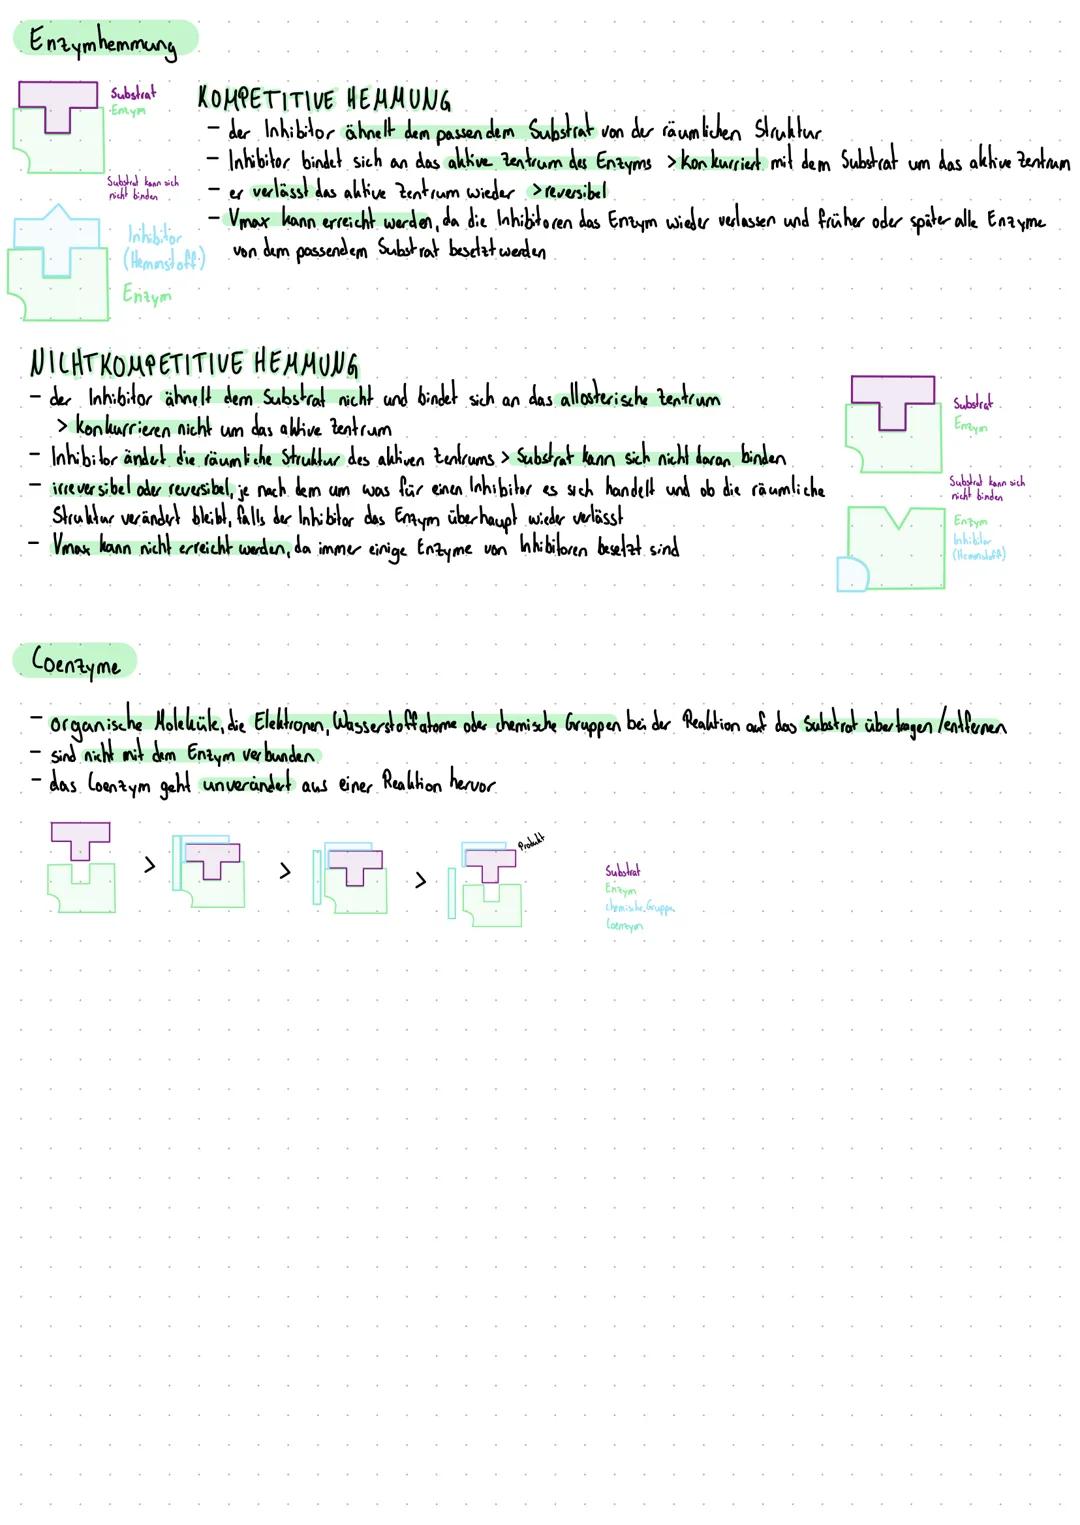 Enzymhemmung
Substrat
Enzym
Substrat kann sich
nicht binden
Inhibitor
(Hemmstoff)
Enzym
KOMPETITIVE HEMMUNG
- der Inhibitor ähnelt dem passendem Substrat von der räumlichen Struktur
- Inhibitor bindet sich an das aktive Zentrum des Enzyms > konkurriert mit dem Substrat um das aktive Zentrum
- er verlässt das aktive Zentrum wieder > reversibel
- Vmax kann erreicht werden, da die Inhibitoren das Enzym wieder verlassen und früher oder später alle Enzyme
von dem passendem Substrat besetzt werden
NICHTKOMPETITIVE HEMMUNG
- der Inhibitor ähnelt dem Substrat nicht und bindet sich an das allosterische Zentrum
> konkurrieren nicht um das aktive Zentrum
- Inhibitor ändert die räumliche Struktur des aktiven Zentrums > Substrat kann sich nicht daran binden
- irreversibel oder reversibel, je nach dem um was für einen Inhibitor es sich handelt und ob die räumliche
Struktur verändert bleibt, falls der Inhibitor das Enzym überhaupt wieder verlässt
- Vmax kann nicht erreicht werden, da immer einige Enzyme von Inhibitoren besetzt sind
Substrat
Enzym
Substrat kann sich
nicht binden
Enzym
Inhibitor
(Hemmstoff)
Coenzyme
- organische Moleküle, die Elektronen, Wasserstoffatome oder chemische Gruppen bei der Reaktion auf das Substrat übertragen/entfernen
- sind nicht mit dem Enzym verbunden
- das Coenzym geht unverändert aus einer Reaktion hervor
> > >
Produkt
Substrat
Enzym
chemische Gruppe
Coenzym